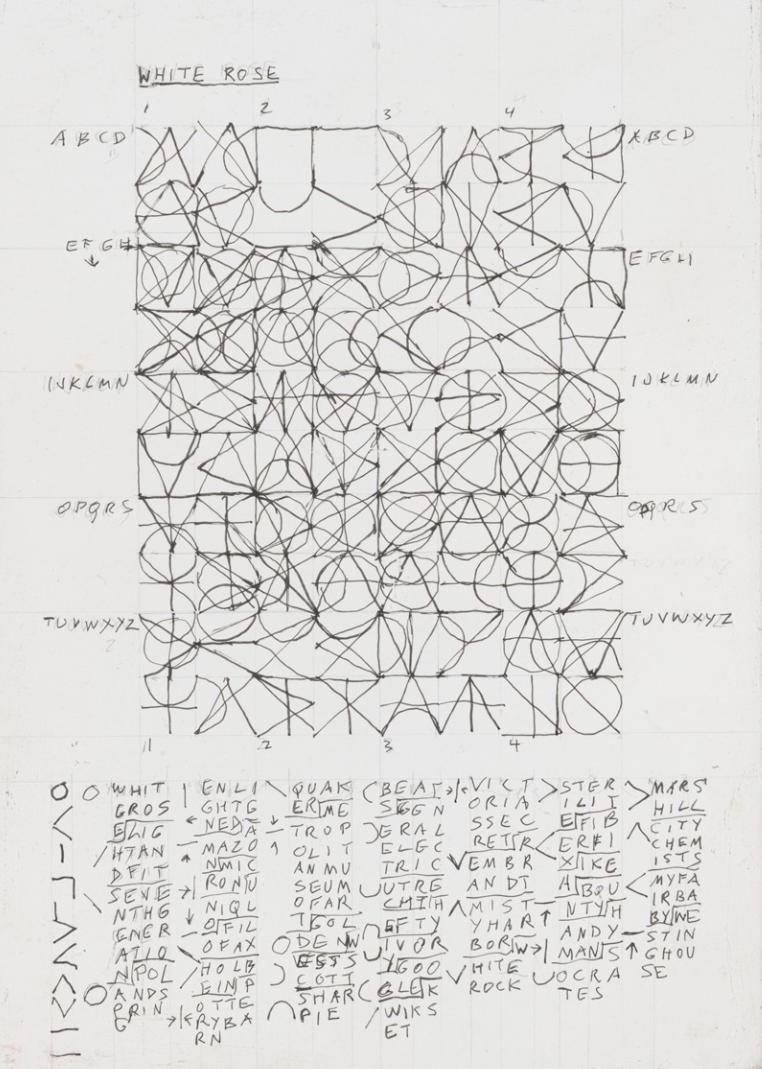 WHITE ROSE
1 2 3 4
ABCD ABCD
EFGH EFGH
IJKLMN IJKLMN
OPQRS OPQRS
TUVWXYZ TUVWXYZ
1 2 3 4
WHIT
GROS
ELIG
HTAN
DFIT
SEVE
NTHG
ENER
ATIO
NPOL
ANDS
PRIN
G
ENLI
GHTG
NEDA
MAZO
NMIC
RONU
NIQU
OFIL
OFAX
HOLB
EINP
OTTE
RYBA
RN
QUAK
ERME
TROP
OLIT
ANMU
SEUM
OFAR
TGOL
DENW
VESS
COTT
SHAR
PIE
BEAT
SGEN
ERAL
ELEC
TRIC
UTRE
CHTH
EFTY
IVOR
YGOO
GLEK
WIKS
ET
VICT
ORIA
SSEC
RETR
EMBR
ANDT
MIST
YHAR
BORW
HITE
ROCK
STER
ILIT
EFIB
ERFI
XIKE
ABQU
NTYH
ANDY
MANS
OCRA
TES
MARS
HILL
CITY
CHEM
ISTS
MYFA
IRBA
BYWE
STIN
GHOU
SE